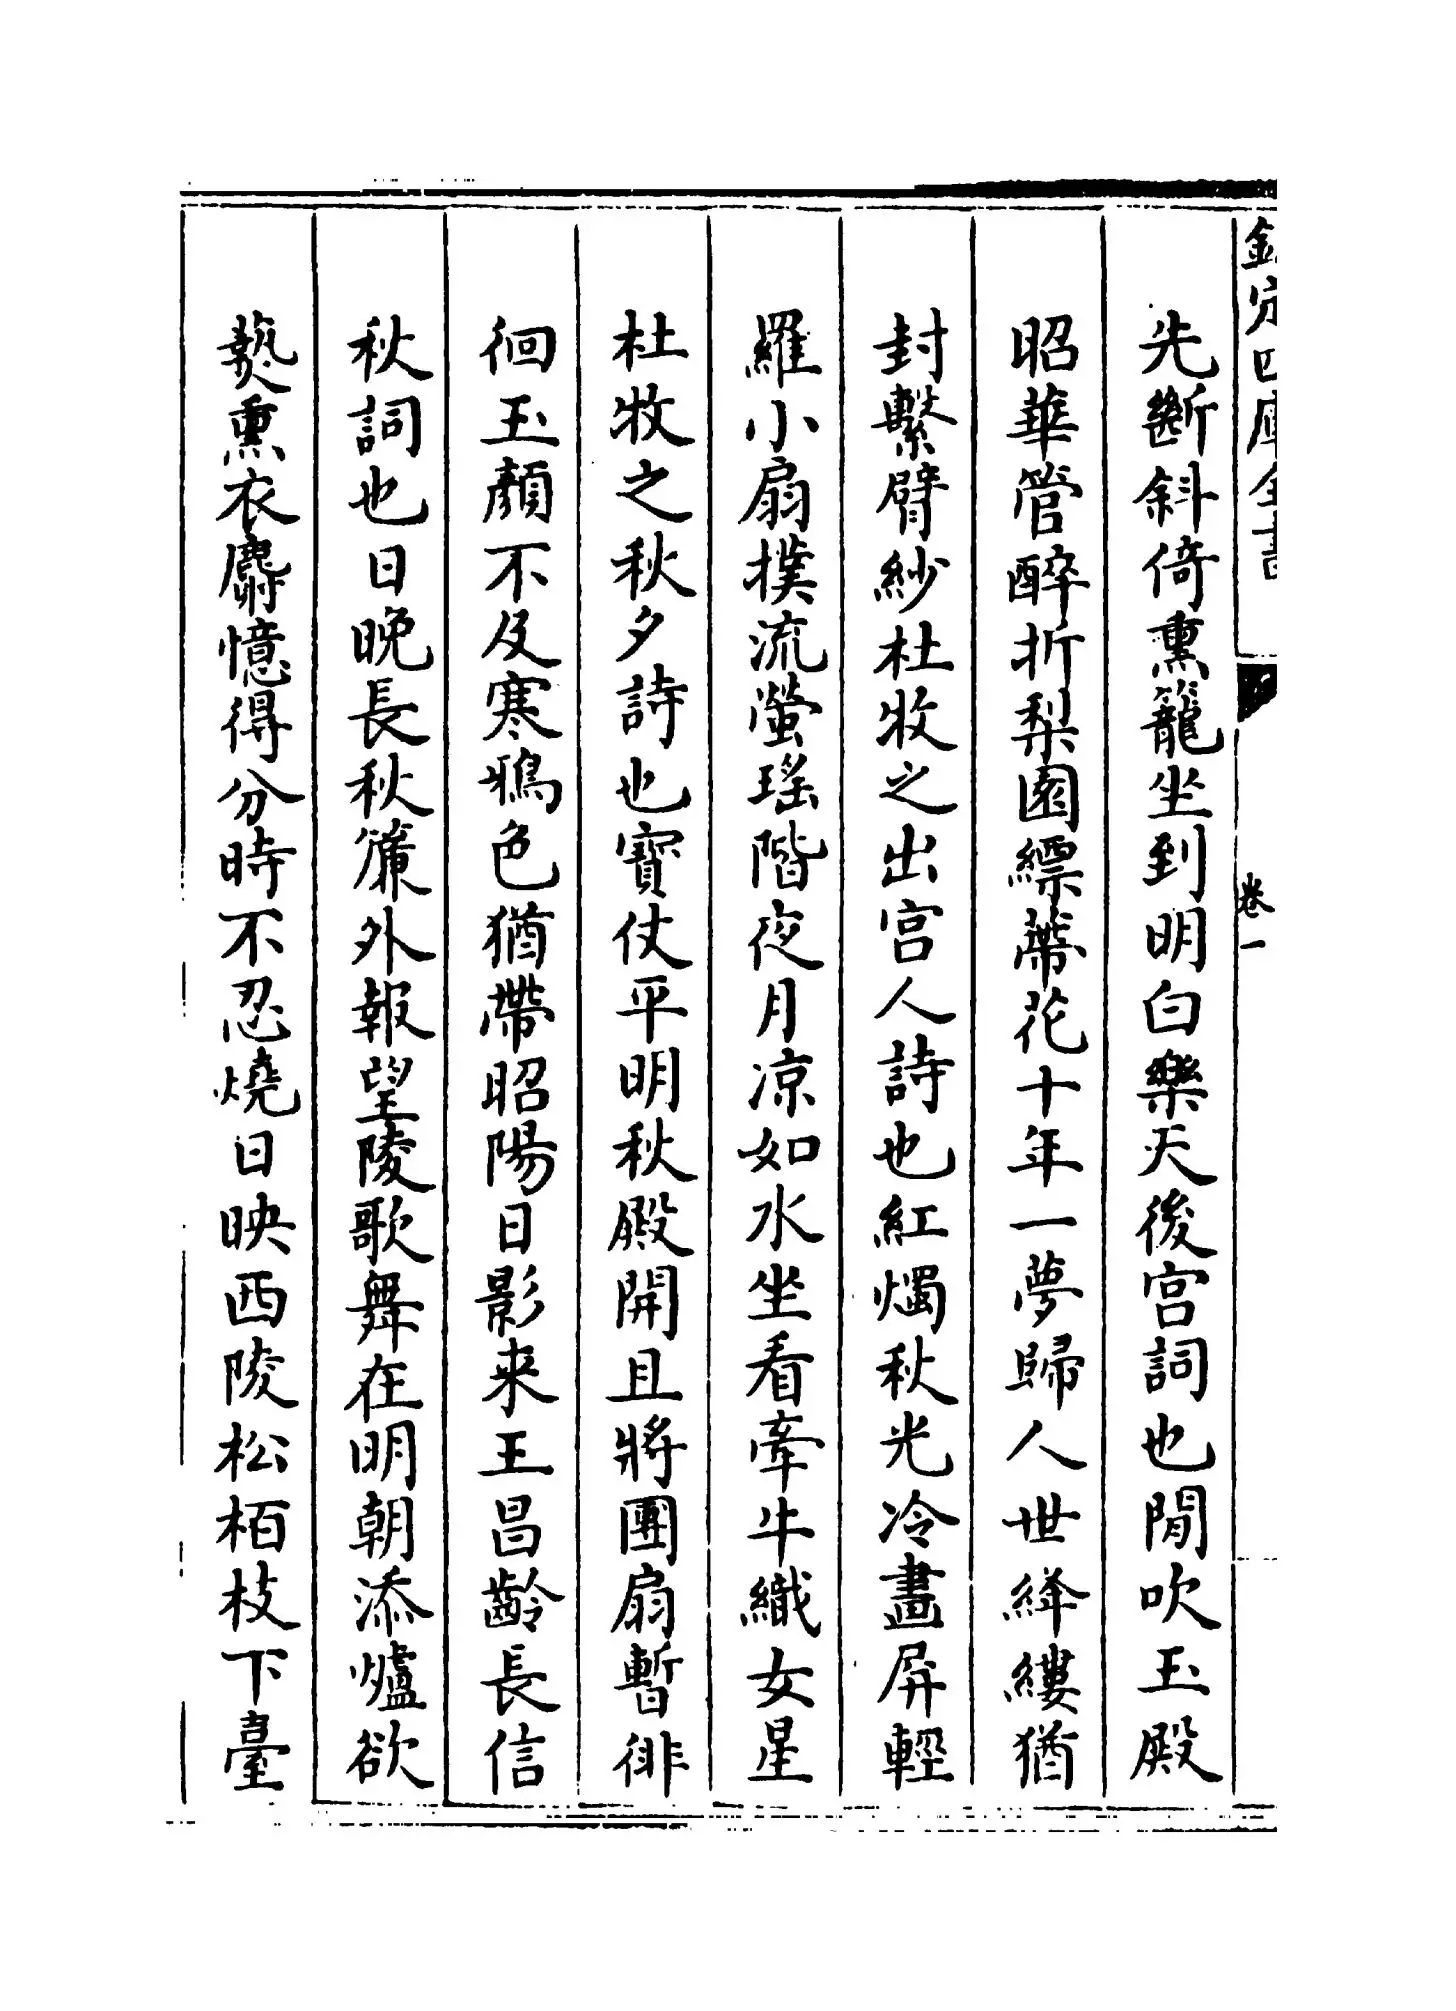 欽定四庫全書
卷一
先斷斜倚熏籠坐到明白樂天後宮詞也閒吹玉殿
昭華管醉折梨園縹蔕花十年一夢歸人世絳縷猶
封繫臂紗杜牧之出宮人詩也紅燭秋光冷畫屏輕
羅小扇撲流螢瑤階夜月凉如水坐看牽牛織女星
杜牧之秋夕詩也寶仗平明秋殿開且將團扇暫徘
徊玉顏不及寒鴉色猶帶昭陽日影来王昌齡長信
秋詞也日晚長秋簾外報望陵歌舞在明朝添爐欲
爇熏衣麝憶得分時不忍燒日映西陵松栢枝下臺